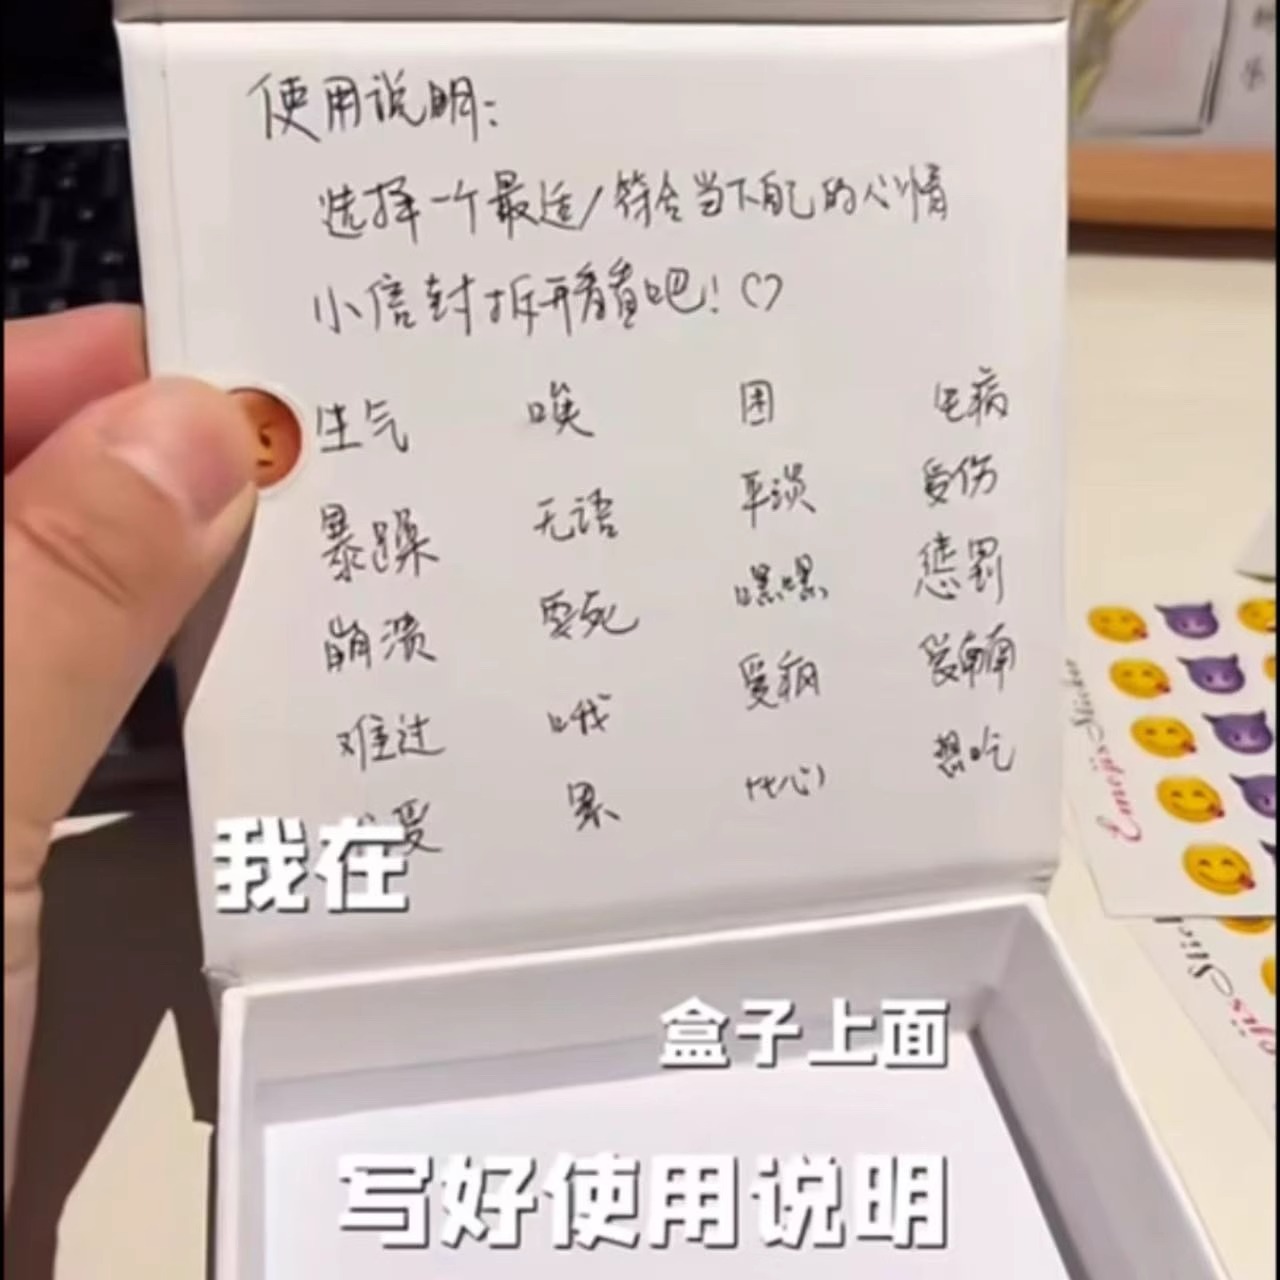 使用说明:
选择一个最适/符合当下自己的心情
小信封拆开看看吧!♡
生气 唉 困 生病
暴躁 无语 平淡 受伤
崩溃 要死 嘿嘿 惩罚
难过 哦 爱
累 比心 想吃
我在
盒子上面
写好使用说明
Emojis Sti